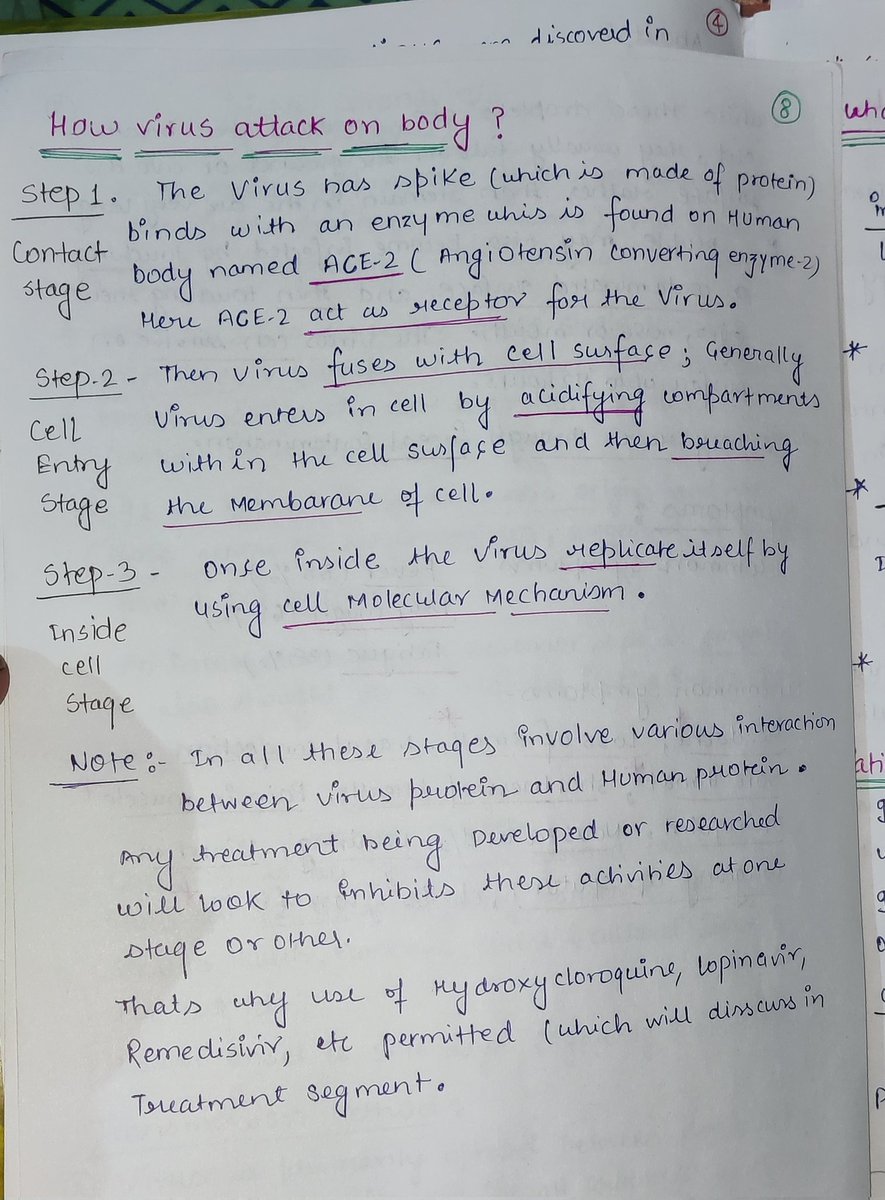 discoverd in
4
8
How virus attack on body ?
Step 1. The Virus has spike (which is made of protein)
Contact stage
binds with an enzyme whis is found on Human
body named ACE-2 ( Angiotensin converting enzyme-2)
Here ACE-2 act as receptor for the Virus.
Step-2 - Then virus fuses with cell surface ; Generally
Cell Entry Stage
Virus enters in cell by acidifying compartments
with in the cell surface and then breaching
the Membarane of cell.
Step-3 - Onse inside the Virus replicate itself by
Inside cell Stage
using cell Molecular Mechanism.
Note :- In all these stages involve various interaction
between virus protein and Human protein.
Any treatment being Developed or researched
will look to inhibits these activities at one
stage or other.
Thats why use of Hydroxycloroquine, lopinavir,
Remedisivir, etc permitted (which will disscuss in
Treatment segment.